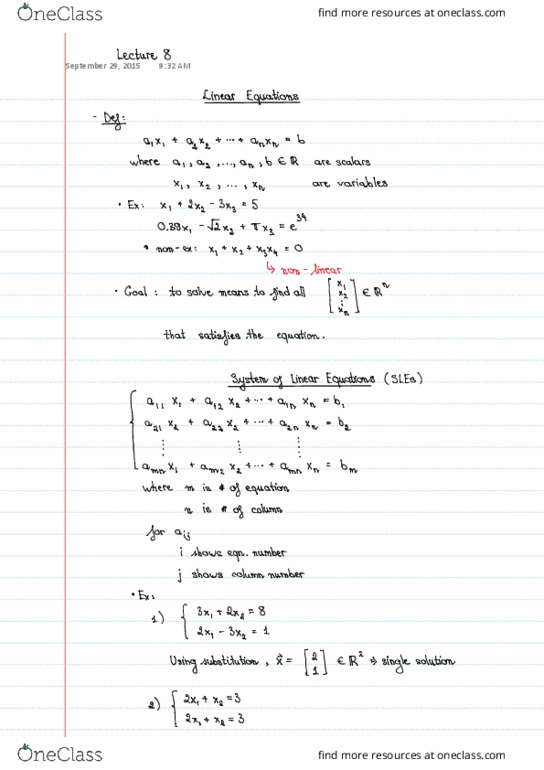 OneClass find more resources at oneclass.com
Lecture 8
September 29, 2015 9:32 AM
Linear Equations
- Def:
a₁x₁ + a₂x₂ + ... + aₙxₙ = b
where a₁, a₂, ..., aₙ, b ∈ ℝ are scalars
x₁, x₂, ..., xₙ are variables
• Ex: x₁ + 2x₂ - 3x₃ = 5
0.39x₁ - √2x₂ + πx₃ = e³⁴
• non-ex: x₁ + x₂ + x₃x₄ = 0
↳ non-linear
• Goal: to solve means to find all [x₁ x₂ ⋮ xₙ] ∈ ℝⁿ
that satisfies the equation.
System of Linear Equations (SLEs)
a₁₁ x₁ + a₁₂ x₂ + ... + a₁ₙ xₙ = b₁
a₂₁ x₂ + a₂₂ x₂ + ... + a₂ₙ xₙ = b₂
⋮ ⋮ ⋮
aₘₙ x₁ + aₘ₂ x₂ + ... + aₘₙ xₙ = bₘ
where m is # of equation
n is # of column
for aᵢⱼ
i shows eqn. number
j shows column number
• Ex:
1) { 3x₁ + 2x₂ = 8
2x₁ - 3x₂ = 1
Using substitution, x⃗ = [2 1] ∈ ℝ² ⇒ single solution
2) { 2x₁ + x₂ = 3
2x₁ + x₂ = 3
OneClass find more resources at oneclass.com